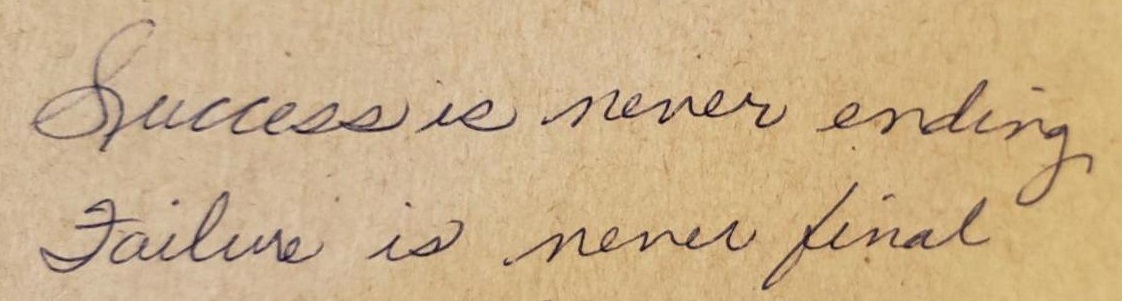 Success is never ending
Failure is never final